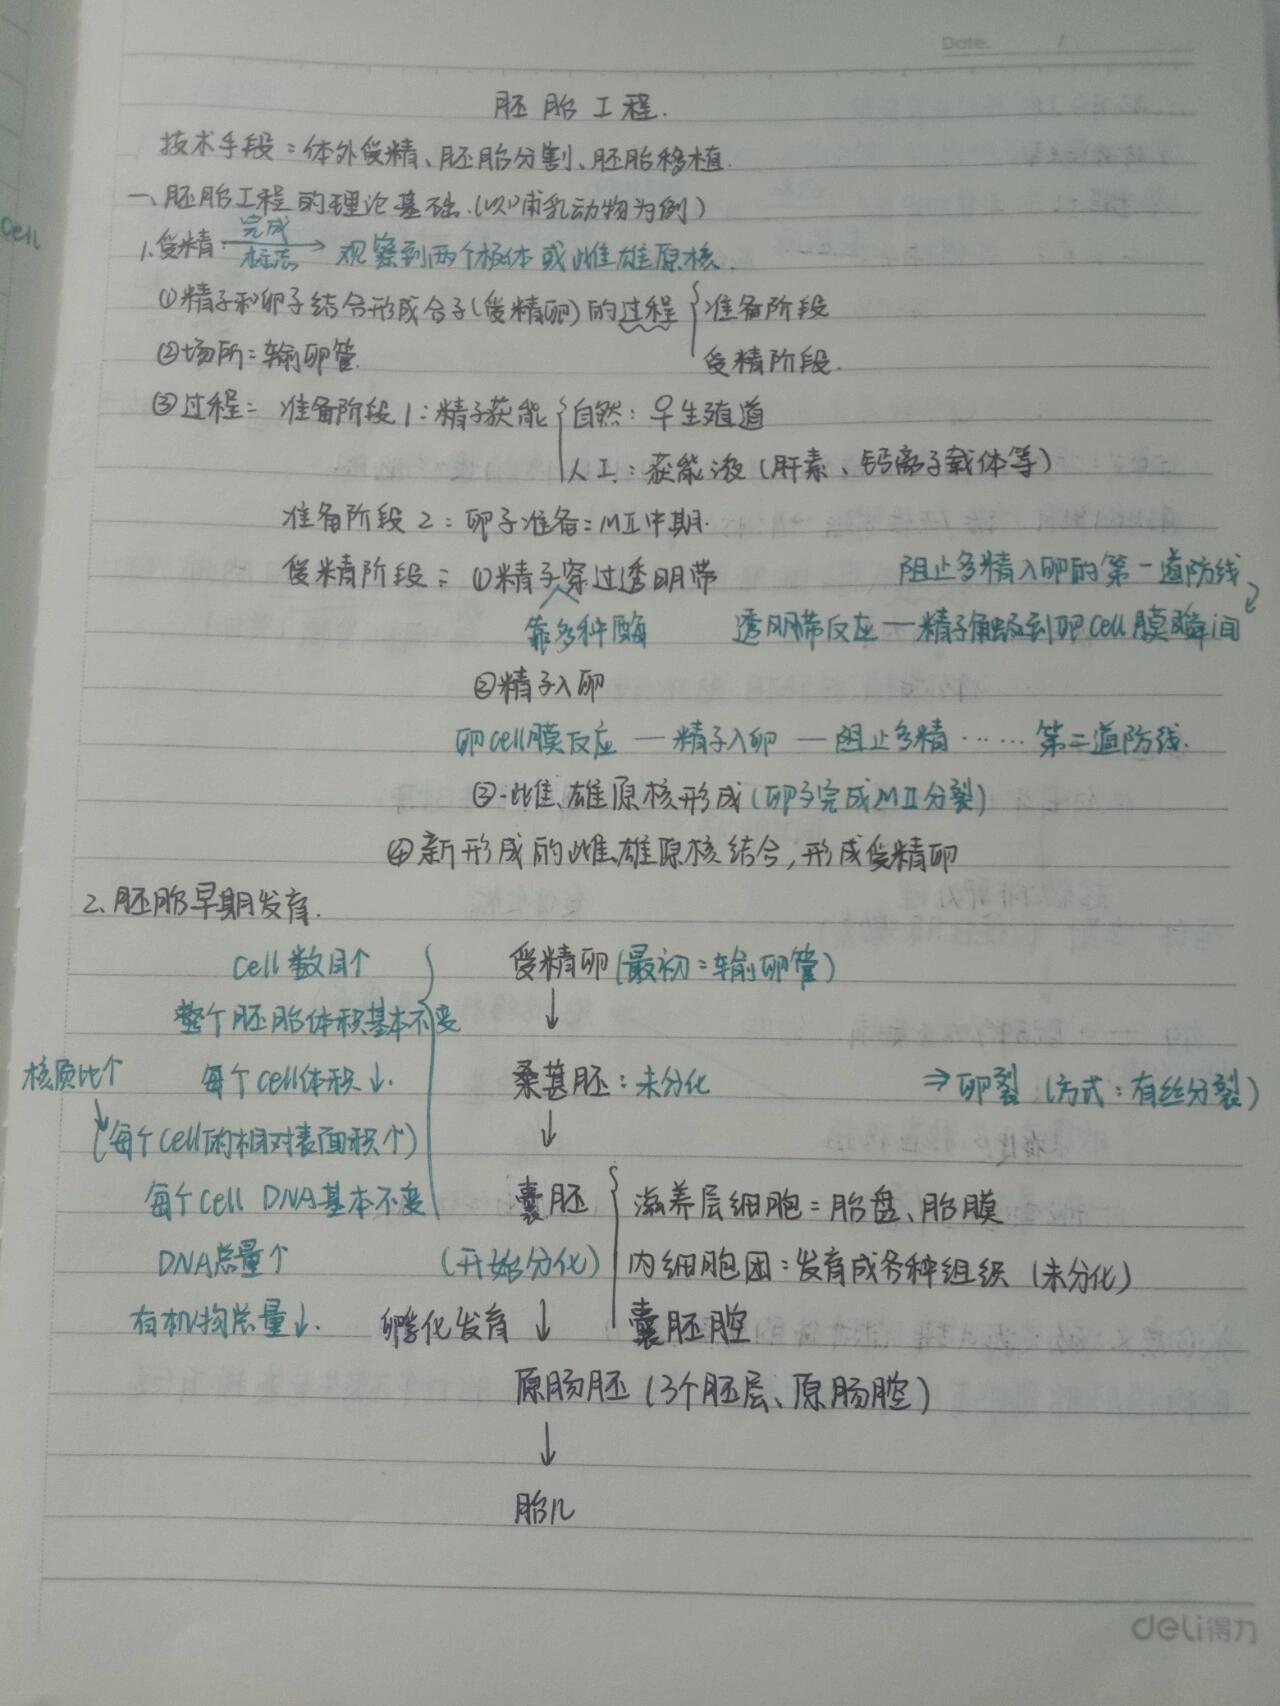 Date.
胚胎工程.
技术手段：体外受精、胚胎分割、胚胎移植.
一、胚胎工程的理论基础.(以哺乳动物为例)
1.受精 完成标志→ 观察到两个极体或雌雄原核.
①精子和卵子结合形成合子(受精卵)的过程 { 准备阶段
②场所：输卵管. 受精阶段.
③过程： 准备阶段1：精子获能 { 自然：♀生殖道
人工：获能液(肝素、钙离子载体等)
准备阶段2：卵子准备：MⅡ中期.
受精阶段：①精子穿过透明带 阻止多精入卵的第一道防线
靠多种酶 透明带反应—精子触及到卵cell膜瞬间
②精子入卵
卵cell膜反应—精子入卵—阻止多精……第二道防线.
③雌、雄原核形成(卵子完成MⅡ分裂)
④新形成的雌、雄原核结合,形成受精卵
2、胚胎早期发育.
cell数目个 受精卵(最初：输卵管)
整个胚胎体积基本不变 ↓
核质比个 每个cell体积↓. 桑葚胚：未分化 ⇒卵裂(方式：有丝分裂)
(每个cell的相对表面积个) ↓
每个cell DNA基本不变 囊胚 { 滋养层细胞：胎盘、胎膜
DNA总量个 (开始分化) 内细胞团：发育成各种组织(未分化)
有机物总量↓. 孵化发育 ↓ 囊胚腔
原肠胚(3个胚层、原肠腔)
↓
胎儿
deli得力
cell